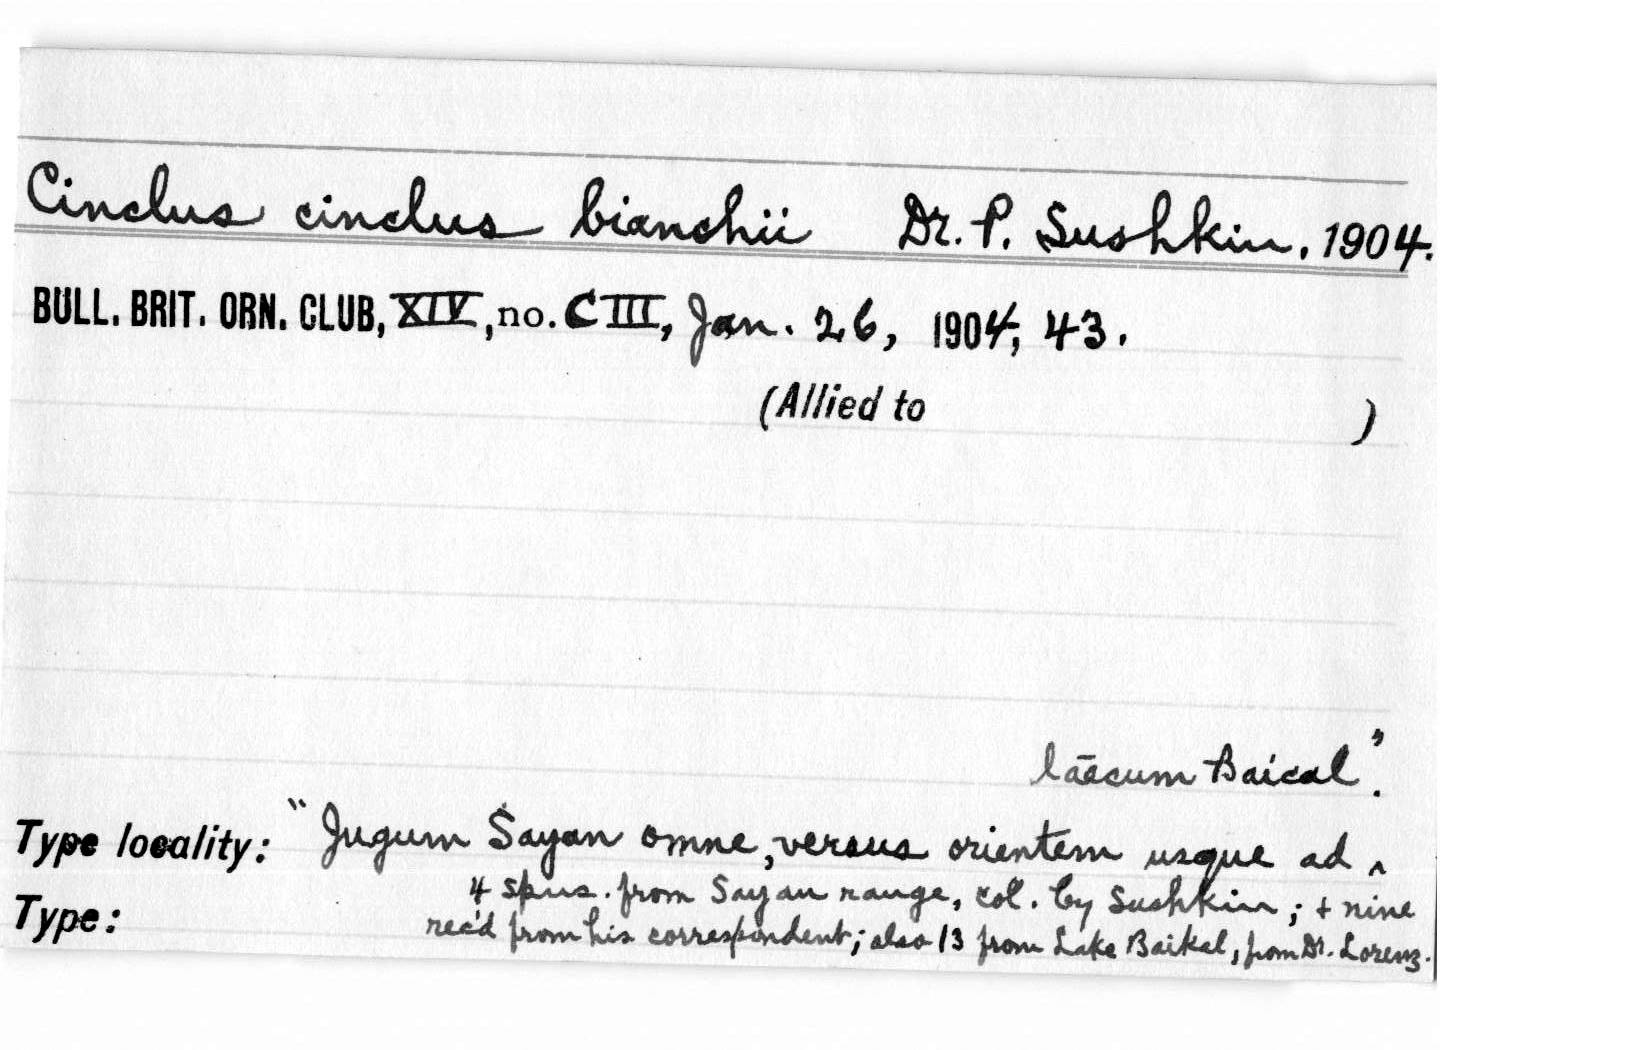 Cinclus cinclus bianchii Dr. P. Sushkin, 1904.
BULL. BRIT. ORN. CLUB, XIV, no. CIII, Jan. 26, 1904, 43.
(Allied to )
lācum Baical".
Type locality: "Jugum Sayan omne, versus orientem usque ad ^
4 spms. from Sayan range, col. by Sushkin; + nine
Type: rec'd from his correspondent; also 13 from Lake Baikal, from Dr. Lorenz.